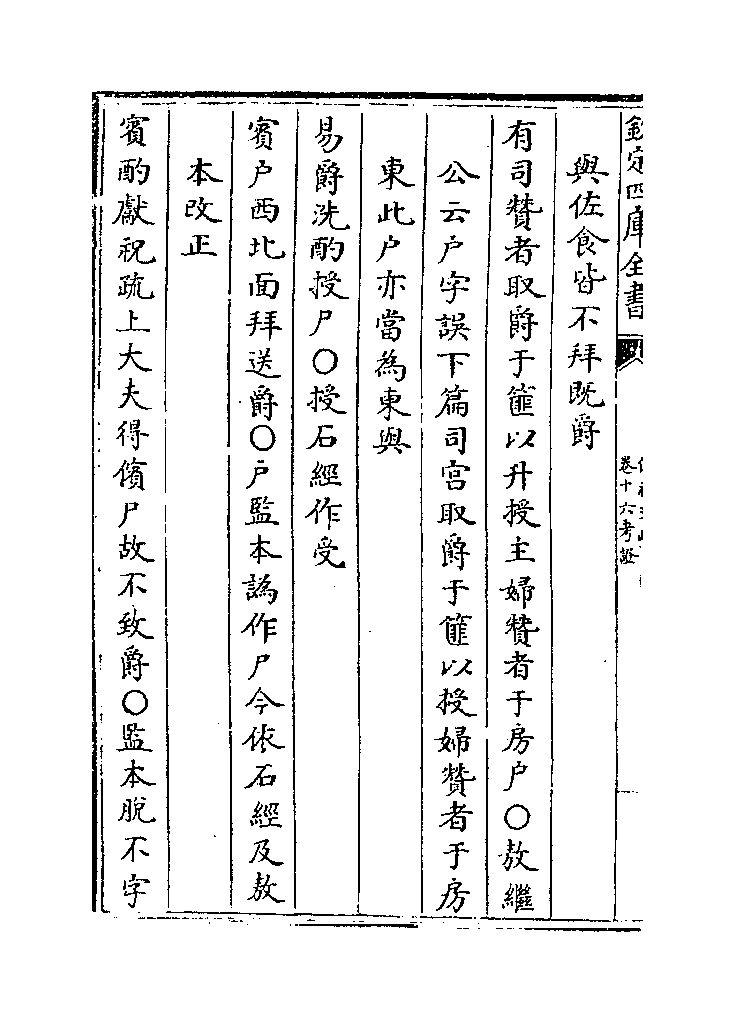 欽定四庫全書
卷十六考證
與佐食皆不拜既爵
有司贊者取爵于篚以升授主婦贊者于房户〇敖繼
公云户字誤下篇司宫取爵于篚以授婦贊者于房
東此户亦當為東與
易爵洗酌授尸〇授石經作受
賓户西北面拜送爵〇户監本譌作尸今依石經及敖
本改正
賓酌獻祝疏上大夫得儐尸故不致爵〇監本脱不字